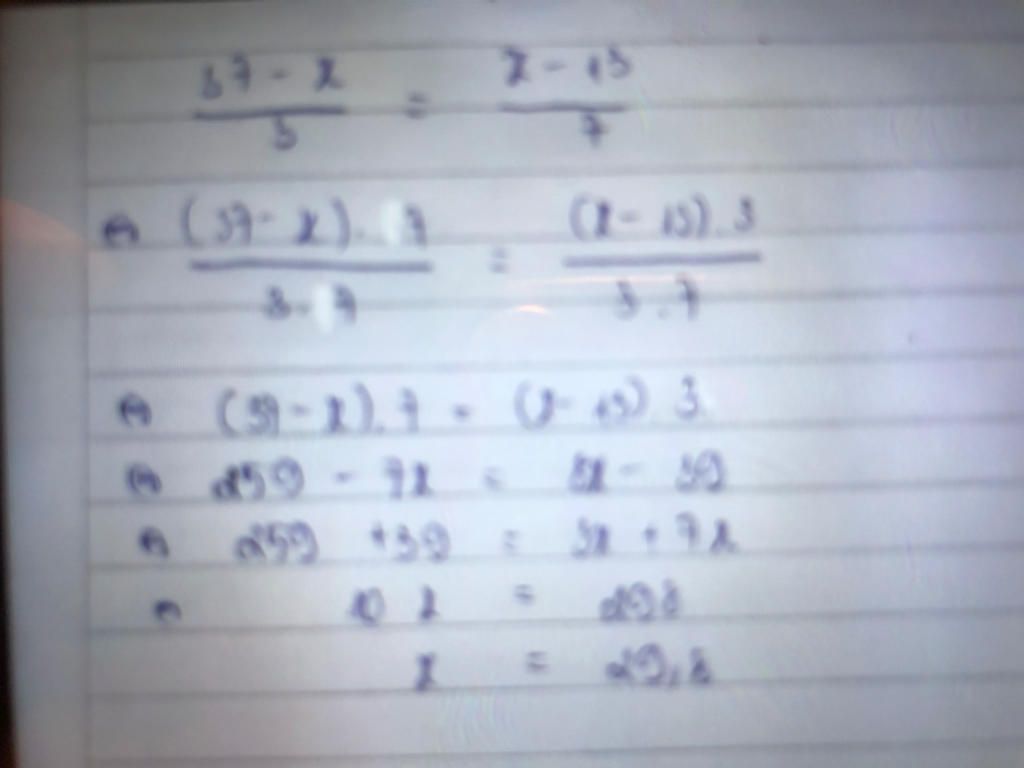 37 - x / 3 = x - 13 / 7
⇔ (37 - x). 7 / 3. 7 = (x - 13). 3 / 3. 7
⇔ (37 - x). 7 = (x - 13) 3
⇔ 259 - 7x = 3x - 39
⇔ 259 + 39 = 3x + 7x
⇔ 10 x = 298
x = 29,8